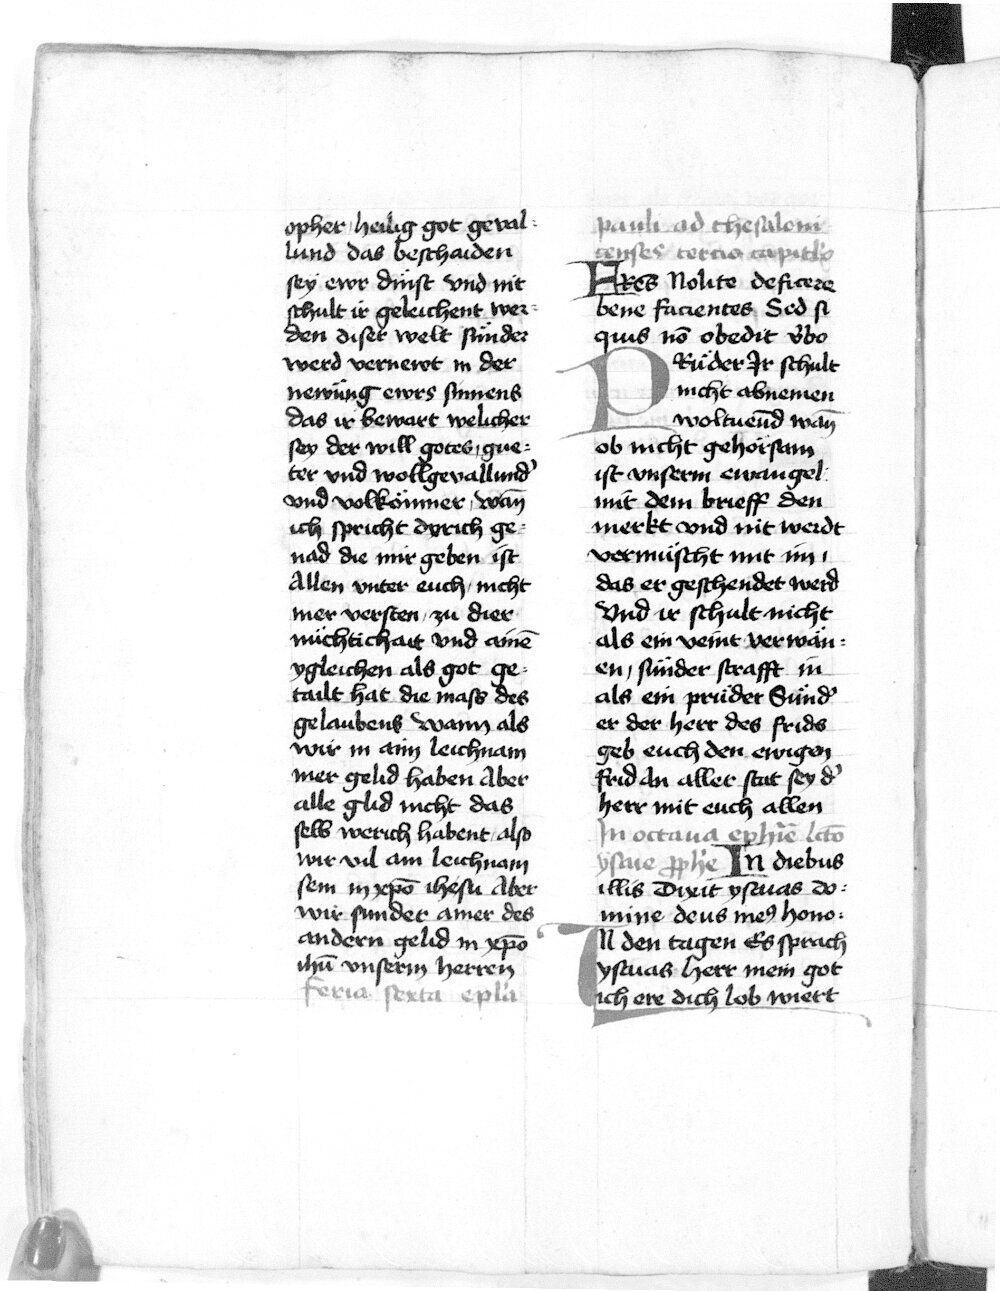 opher heilig got geval-
lund das beschaiden
sey ewr dinst vnd nit
schult ir geleichent wer-
den diser welt sunder
werd vernewt in der
newung ewrs sinnens
das ir bewart welicher
sey der will gotes, gue-
ter vnd wollgevallund'
vnd volkömner, wan̄
ich spricht dyrich ge-
nad die mir geben ist
Allen vnter euch, nicht
mer versten, zu dier
nüchtichait vnd ainē
ygleichen als got ge-
tailt hat die mass des
gelaubens Wann als
wir in ain leichnam
mer gelid haben Aber
alle glid nicht das
selb werich habent, also
wir vil ain leichnam
sein in xp̄o ihesu Aber
wir sunder ainer des
andern gelid in xp̄o
ihū vnserm herren
Feria sexta ep̄la
pauli ad thesaloni
censes tercio capitlo
FRes Nolite deficere
bene facientes Sed si
quis nō obedit v̄bo
PRüder Jr schult
nicht abnemen
woltuend wan̄
ob nicht gehorsam
ist vnserm ewangel
mit dem brieff den
merkt vnd nit weidt
vermüscht mit im,
das er geschendet werd
Vnd ir schult nicht
als ein veint verwän-
en, sünder strafft in
als ein prüder Sünd'
er der herr des frids
geb euch den ewigen
frid An aller stat sey d'
herr mit euch allen
In octaua ephīe lcto
ysaie pphe In diebus
illis Dixit ysaias do-
mine deus meꝰ hono-
IN den tagen Es sprach
ysaias herr mein got
ich ere dich lob wiert